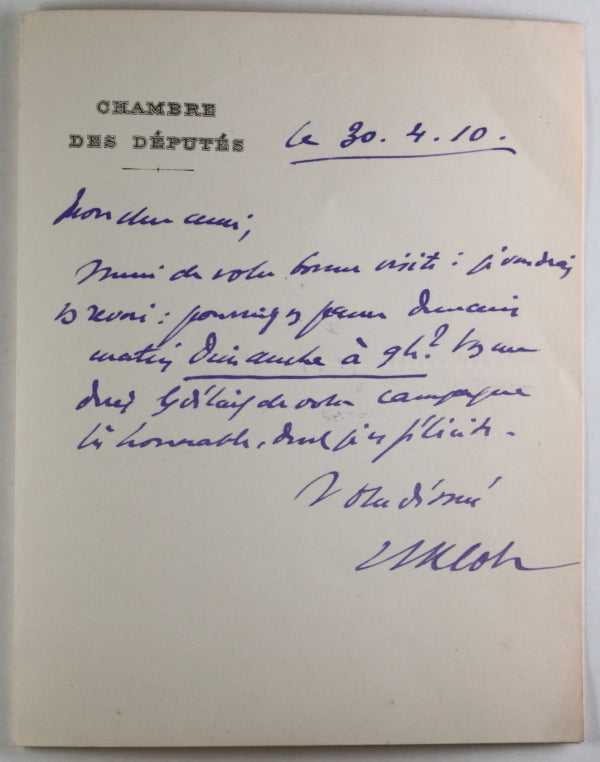 CHAMBRE
DES DÉPUTÉS
le 30.4.10.
Mon cher ami,
Merci de votre bonne visite : je voudrais
vs revoir : pourriez vs passer demain
matin Dimanche à 9h ? Vs me
direz les détails de votre campagne
très honorable, dont je vs félicite.
Votre dévoué
LLKlotz